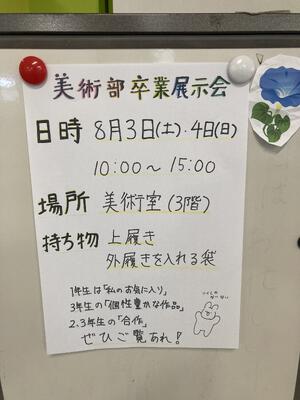 美術部卒業展示会
日時 8月3日(土)・4日(日)
10:00～15:00
場所 美術室(3階)
持ち物 上履き
外履きを入れる袋
1年生は「私のお気に入り」
3年生の「個性豊かな作品」
2.3年生の「合作」
ぜひご覧あれ!